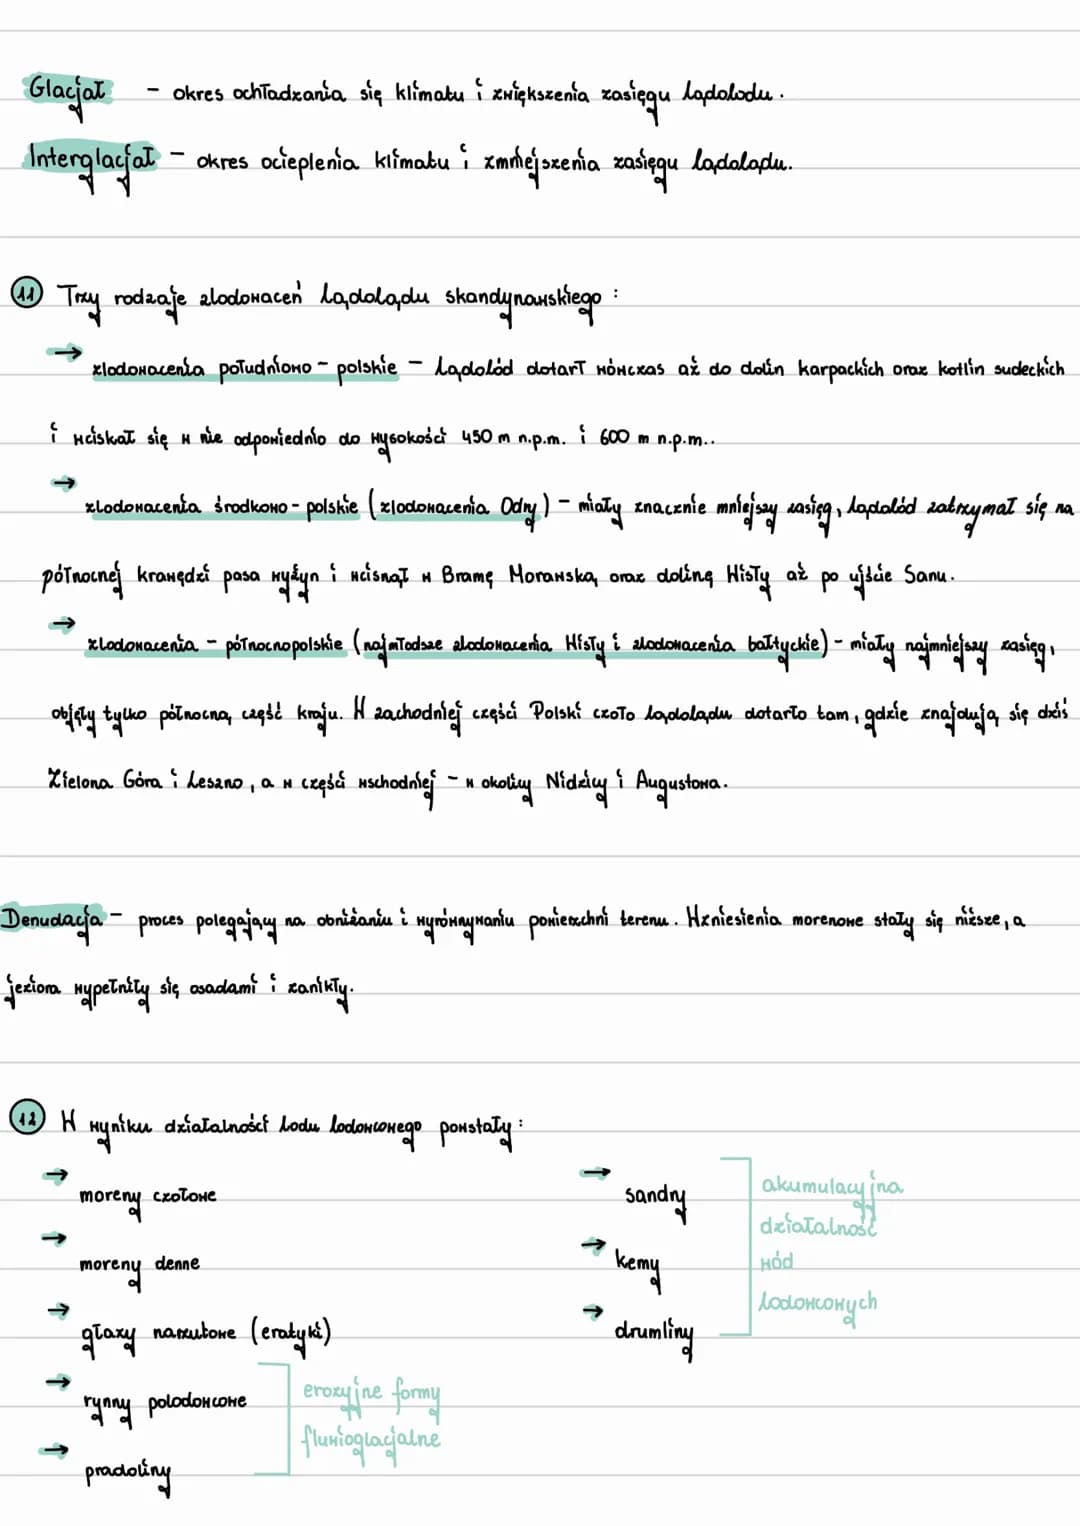 Glacjał - okres ochładzania się klimatu i zwiększenia zasięgu lądolodu.
Interglacjał - okres ocieplenia klimatu i zmniejszenia zasięgu lądolądu.
11 Trzy rodzaje zlodowaceń lądolądu skandynawskiego :
→ zlodowacenia południowo - polskie - lądolód dotarł wówczas aż do dolin karpackich oraz kotlin sudeckich
i wciskał się w nie odpowiednio do wysokości 450 m n.p.m. i 600 m n.p.m..
→ zlodowacenia środkowo - polskie (zlodowacenia Odry) - miały znacznie mniejszy zasięg, lądolód zatrzymał się na
północnej krawędzi pasa wyżyn i wcisnął w Bramę Morawską oraz dolinę Wisły aż po ujście Sanu.
→ zlodowacenia - północnopolskie (najmłodsze zlodowacenia Wisły i zlodowacenia bałtyckie) - miały najmniejszy zasięg,
objęły tylko północną część kraju. W zachodniej części Polski czoło lądolądu dotarło tam, gdzie znajdują się dziś
Zielona Góra i Leszno, a w część wschodniej - w okolicy Nidzicy i Augustowa.
Denudacja - proces polegający na obniżaniu i wyrównywaniu powierzchni terenu. Wzniesienia morenowe stały się niższe, a
jeziora wypełniły się osadami i zanikły.
12 W wyniku działalności lodu lodowcowego powstały :
→ moreny czołowe
→ moreny denne
→ głazy narzutowe (eratyki)
→ rynny polodowcowe
→ pradoliny
erozyjne formy
fluwioglacjalne
→ sandry
→ kemy
→ drumliny
akumulacyjna
działalność
wód
lodowcowych